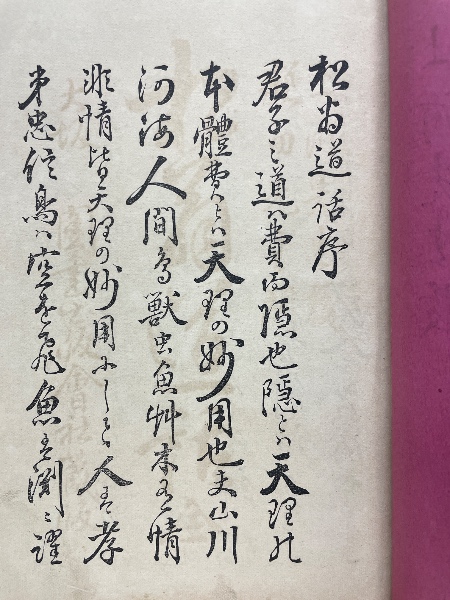 松翁道話序
君子之道ハ費而隠也隠とハ天理の
本體費とハ天理の妙用也夫山川
河海人間鳥獣虫魚艸木有情
非情皆天理の妙用にして人は孝
弟忠信鳥ハ空を飛魚は淵に躍